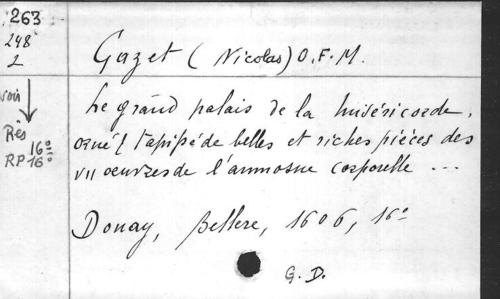 263
248
2
Gazet (Nicolas) O.F.M.
voir
Le grand palais de la miséricorde,
Rés
16º
RP 16º
orné & tapissé de belles et riches pièces des
VII oeuvres de l'aumosne corporelle ...
Douay, Bellere, 1606, 16º
G. D.